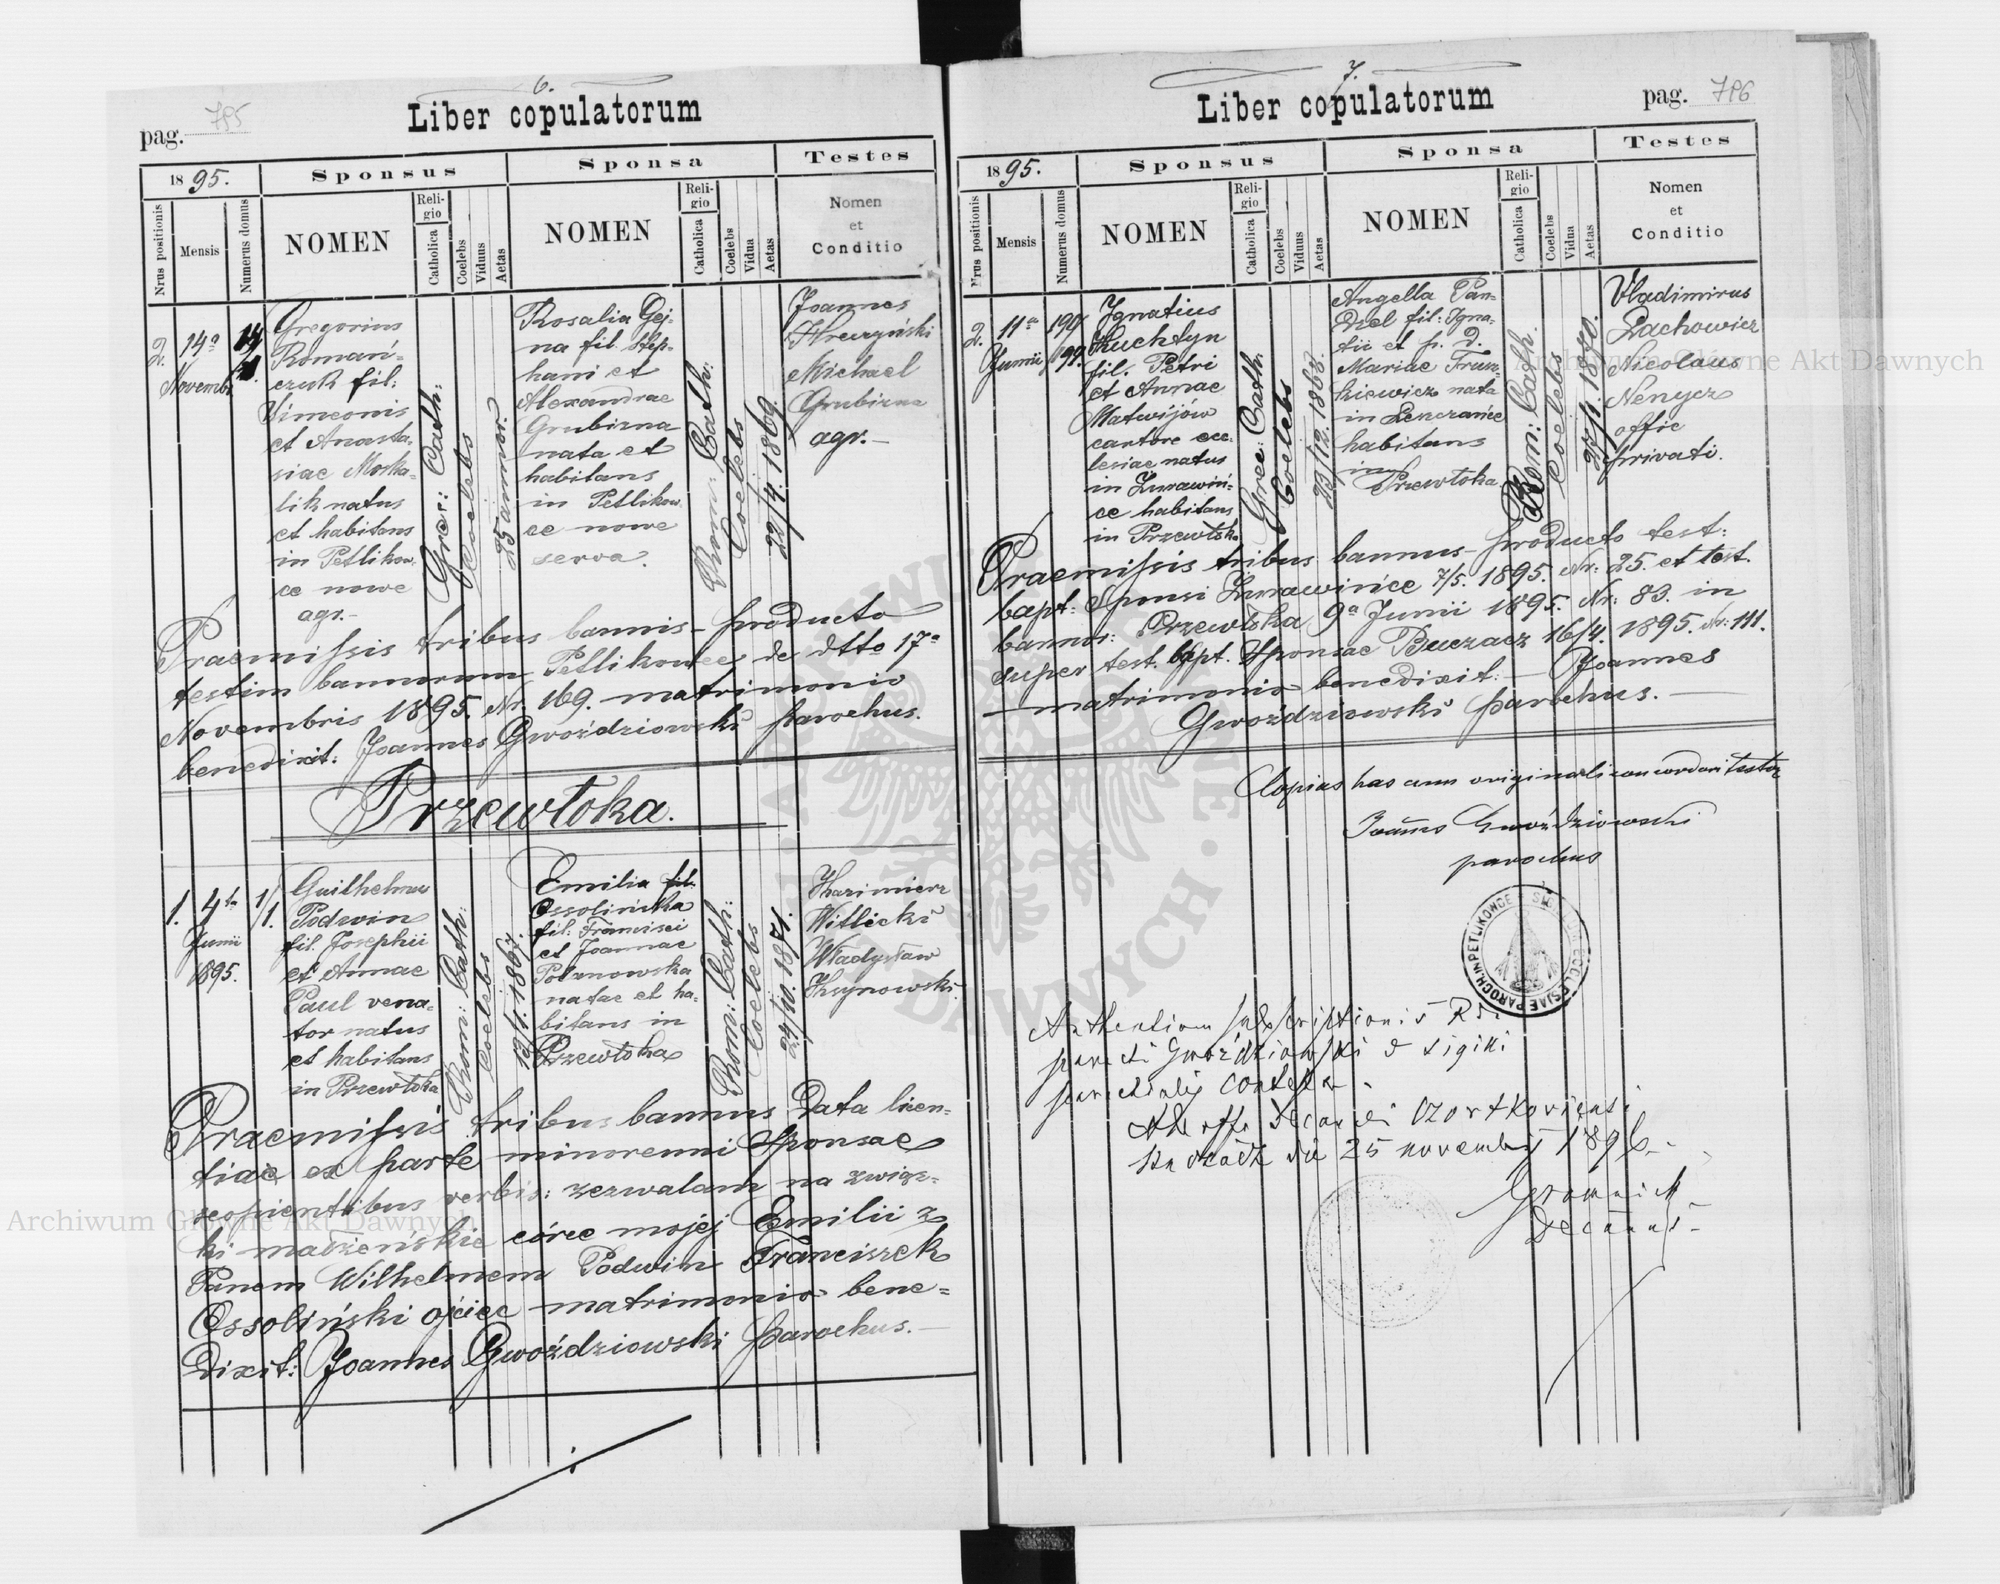 6.
Liber copulatorum
pag. 795
1895.
Sponsus
Sponsa
Testes
Nrus positionis
Mensis
Numerus domus
NOMEN
Religio
Catholica
Coelebs
Viduus
Aetas
NOMEN
Religio
Catholica
Coelebs
Vidua
Aetas
Nomen
et
Conditio
2.
14a
Novembr.
Gregorius
Romań-
czuk fil:
Simeonis
et Anasta-
siae Moska-
lik natus
et habitans
in Petlikow
ce nowe
agr.-
Grec: Cath:
Coelebs
25 annor.
Rosalia Gej-
na fil. Step-
hani et
Alexandrae
Grubizna
nata et
habitans
in Petlikow
ce nowe
serva.
Rom: Cath:
Coelebs
22/4. 1869.
Joannes
Hreczyński
Michael
Grubizna
agr.-
Praemissis tribus bannis - producto
testim bannorum Petlikowce de dtto 17a
Novembris 1895. Nr. 169. matrimonio
benedixit: Joannes Gwoździowski parochus.
Przewłoka.
1.
4ta
Junii
1895.
1/1.
Guilhelmus
Podwin
fil. Josephii
et Annae
Paul vena-
tor natus
et habitans
in Przewłoka
Rom: Cath:
Coelebs
13/1. 1867.
Emilia fil:
Ossolińska
fil: Francisci
et Joannae
Potznowska
natae et ha-
bitans in
Przewłoka
Rom: Cath:
Coelebs
24/10. 1871.
Kazimierz
Witlicki
Władysław
Ksynowski.
Praemissis tribus bannus Data licen-
tiae ex parte minorenni Sponsae
seqpientibus verbis: zezwalam na związ-
ki małżeńskie córce mojej Emilii z
Panem Wilhelmem Podwin Franciszek
Ossoliński ojciec matrimonio bene-
dixit: Joannes Gwoździowski parochus.-
7.
Liber copulatorum
pag. 796
1895.
Sponsus
Sponsa
Testes
Nrus positionis
Mensis
Numerus domus
NOMEN
Religio
Catholica
Coelebs
Viduus
Aetas
NOMEN
Religio
Catholica
Coelebs
Vidua
Aetas
Nomen
et
Conditio
2.
11a
Junii
194/
199.
Ignatius
Kuchtyn
fil. Petri
et Annae
Matwijów
cantore ecc-
lesiae natus
in Zurawiń-
ce habitans
in Przewłoka
Grec: Cath.
Coelebs
23/12. 1868.
Angella Pan-
dzel fil: Igna-
tii et p. d.
Mariae Frun-
kiewicz nata
in Lenczańce
habitans
in
Przewłoka.
Rom: Cath.
Coelebs
25/1. 1880.
Vladimirus
Lachowicz
Nicolaus
Nenycz
offic
privati.
Praemissis tribus bannus - producto test:
bapt: Sponsi Zurawińce 7/5. 1895. Nr: 25. et test.
bannor: Przewłoka 9a Junii 1895. Nr: 83. in
super test. bapt. Sponsae Buczacz 16/4. 1895. Nr: 111.
matrimonio benedixit: - Joannes
Gwoździowski parochus. -
Copias has cum originali concordari testor
Joannes Gwoździowski
parochus
PAROCH. IN PETLIKOWCE
ECCLESIAE
Authenticam subscriptionis R
parochi Gwoździowski & sigilli
parochialis contestor.
Ab offo decanali Czortkoviensi
Buczacz die 25 novembris 1896.-
Gromnicki
Decanus
Archiwum Główne Akt Dawnych
Archiwum Główne Akt Dawnych